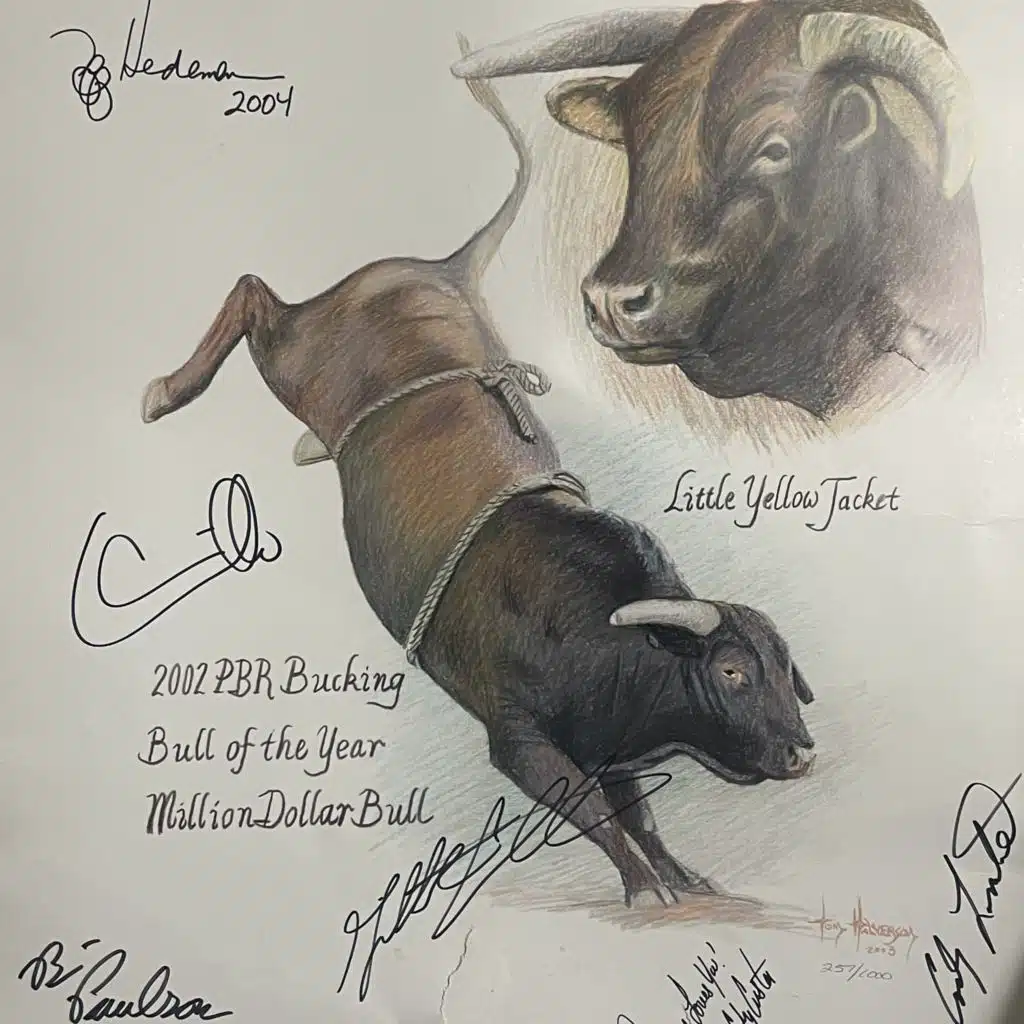 Hedeman
2004
Little Yellow Jacket
2002 PBR Bucking
Bull of the Year
Million Dollar Bull
Paulson
Tom Halverson
2003
257/1000